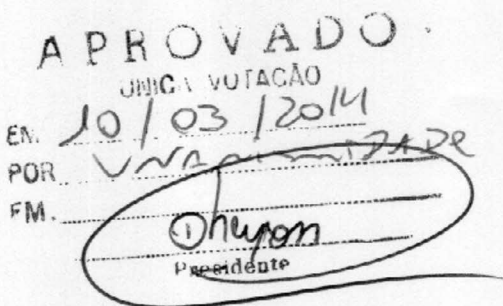 APROVADO
UNICA VOTAÇÃO
EM 10/03/2014
POR UNANIMIDADE
EM
Presidente